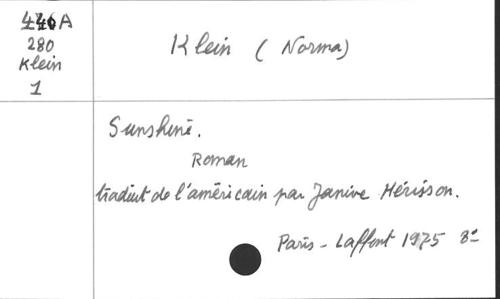 446A
280
Klein
1
Klein ( Norma)
Sunshine.
Roman
traduit de l'américain par Janine Hérisson.
Paris - Laffont 1975 8º